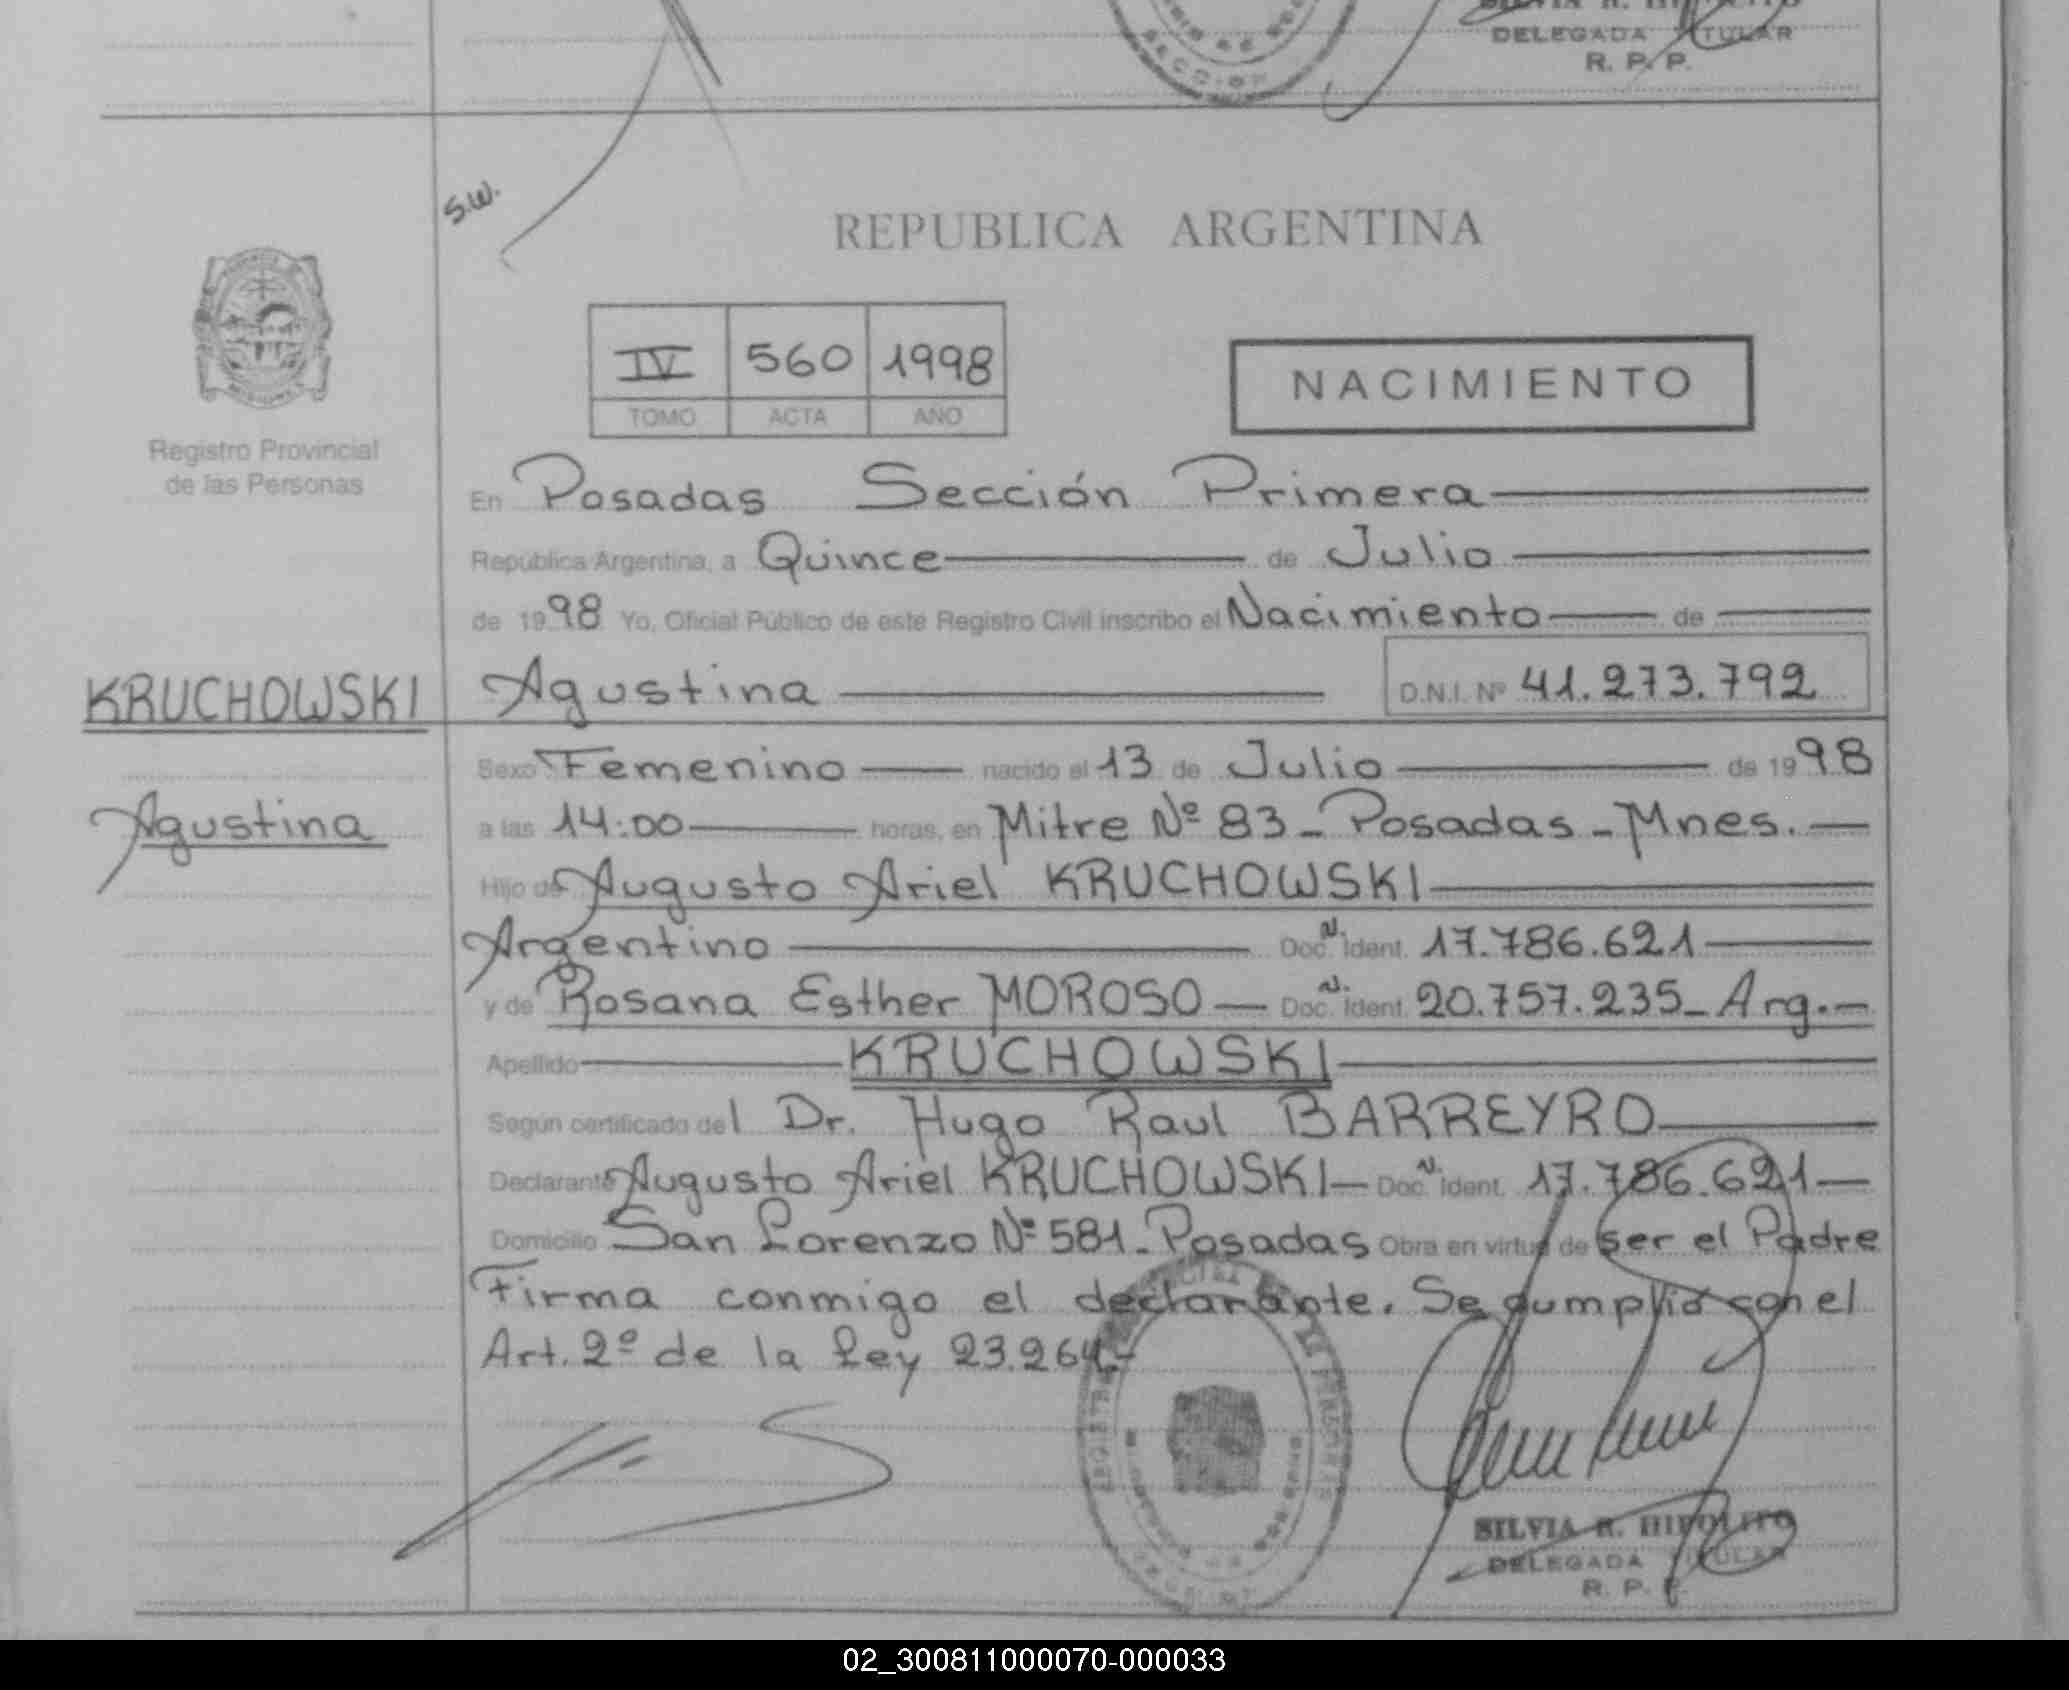 DELEGADA TITULAR
R. P. P.
S.W.
REPUBLICA ARGENTINA
IV 560 1998
TOMO ACTA AÑO
NACIMIENTO
Registro Provincial
de las Personas
En Posadas Sección Primera
República Argentina, a Quince de Julio
de 1998 Yo, Oficial Público de este Registro Civil inscribo el Nacimiento de
KRUCHOWSKI Agustina D.N.I. Nº 41.273.792
Sexo Femenino nacido el 13 de Julio de 1998
Agustina a las 14:00 horas, en Mitre Nº 83 - Posadas - Mnes.
Hijo de Augusto Ariel KRUCHOWSKI
Argentino Doc. N. Ident. 17.786.621
y de Rosana Esther MOROSO Doc. N. Ident. 20.757.235 - Arg.
Apellido KRUCHOWSKI
Según certificado del Dr. Hugo Raul BARREYRO
Declarante Augusto Ariel KRUCHOWSKI Doc. N. Ident. 17.786.621
Domicilio San Lorenzo Nº 581 - Posadas Obra en virtud de ser el Padre
Firma conmigo el declarante. Se cumplió con el
Art. 2º de la Ley 23.264.-
SILVIA R. HIPOLITO
DELEGADA TITULAR
R. P. P.
02_300811000070-000033